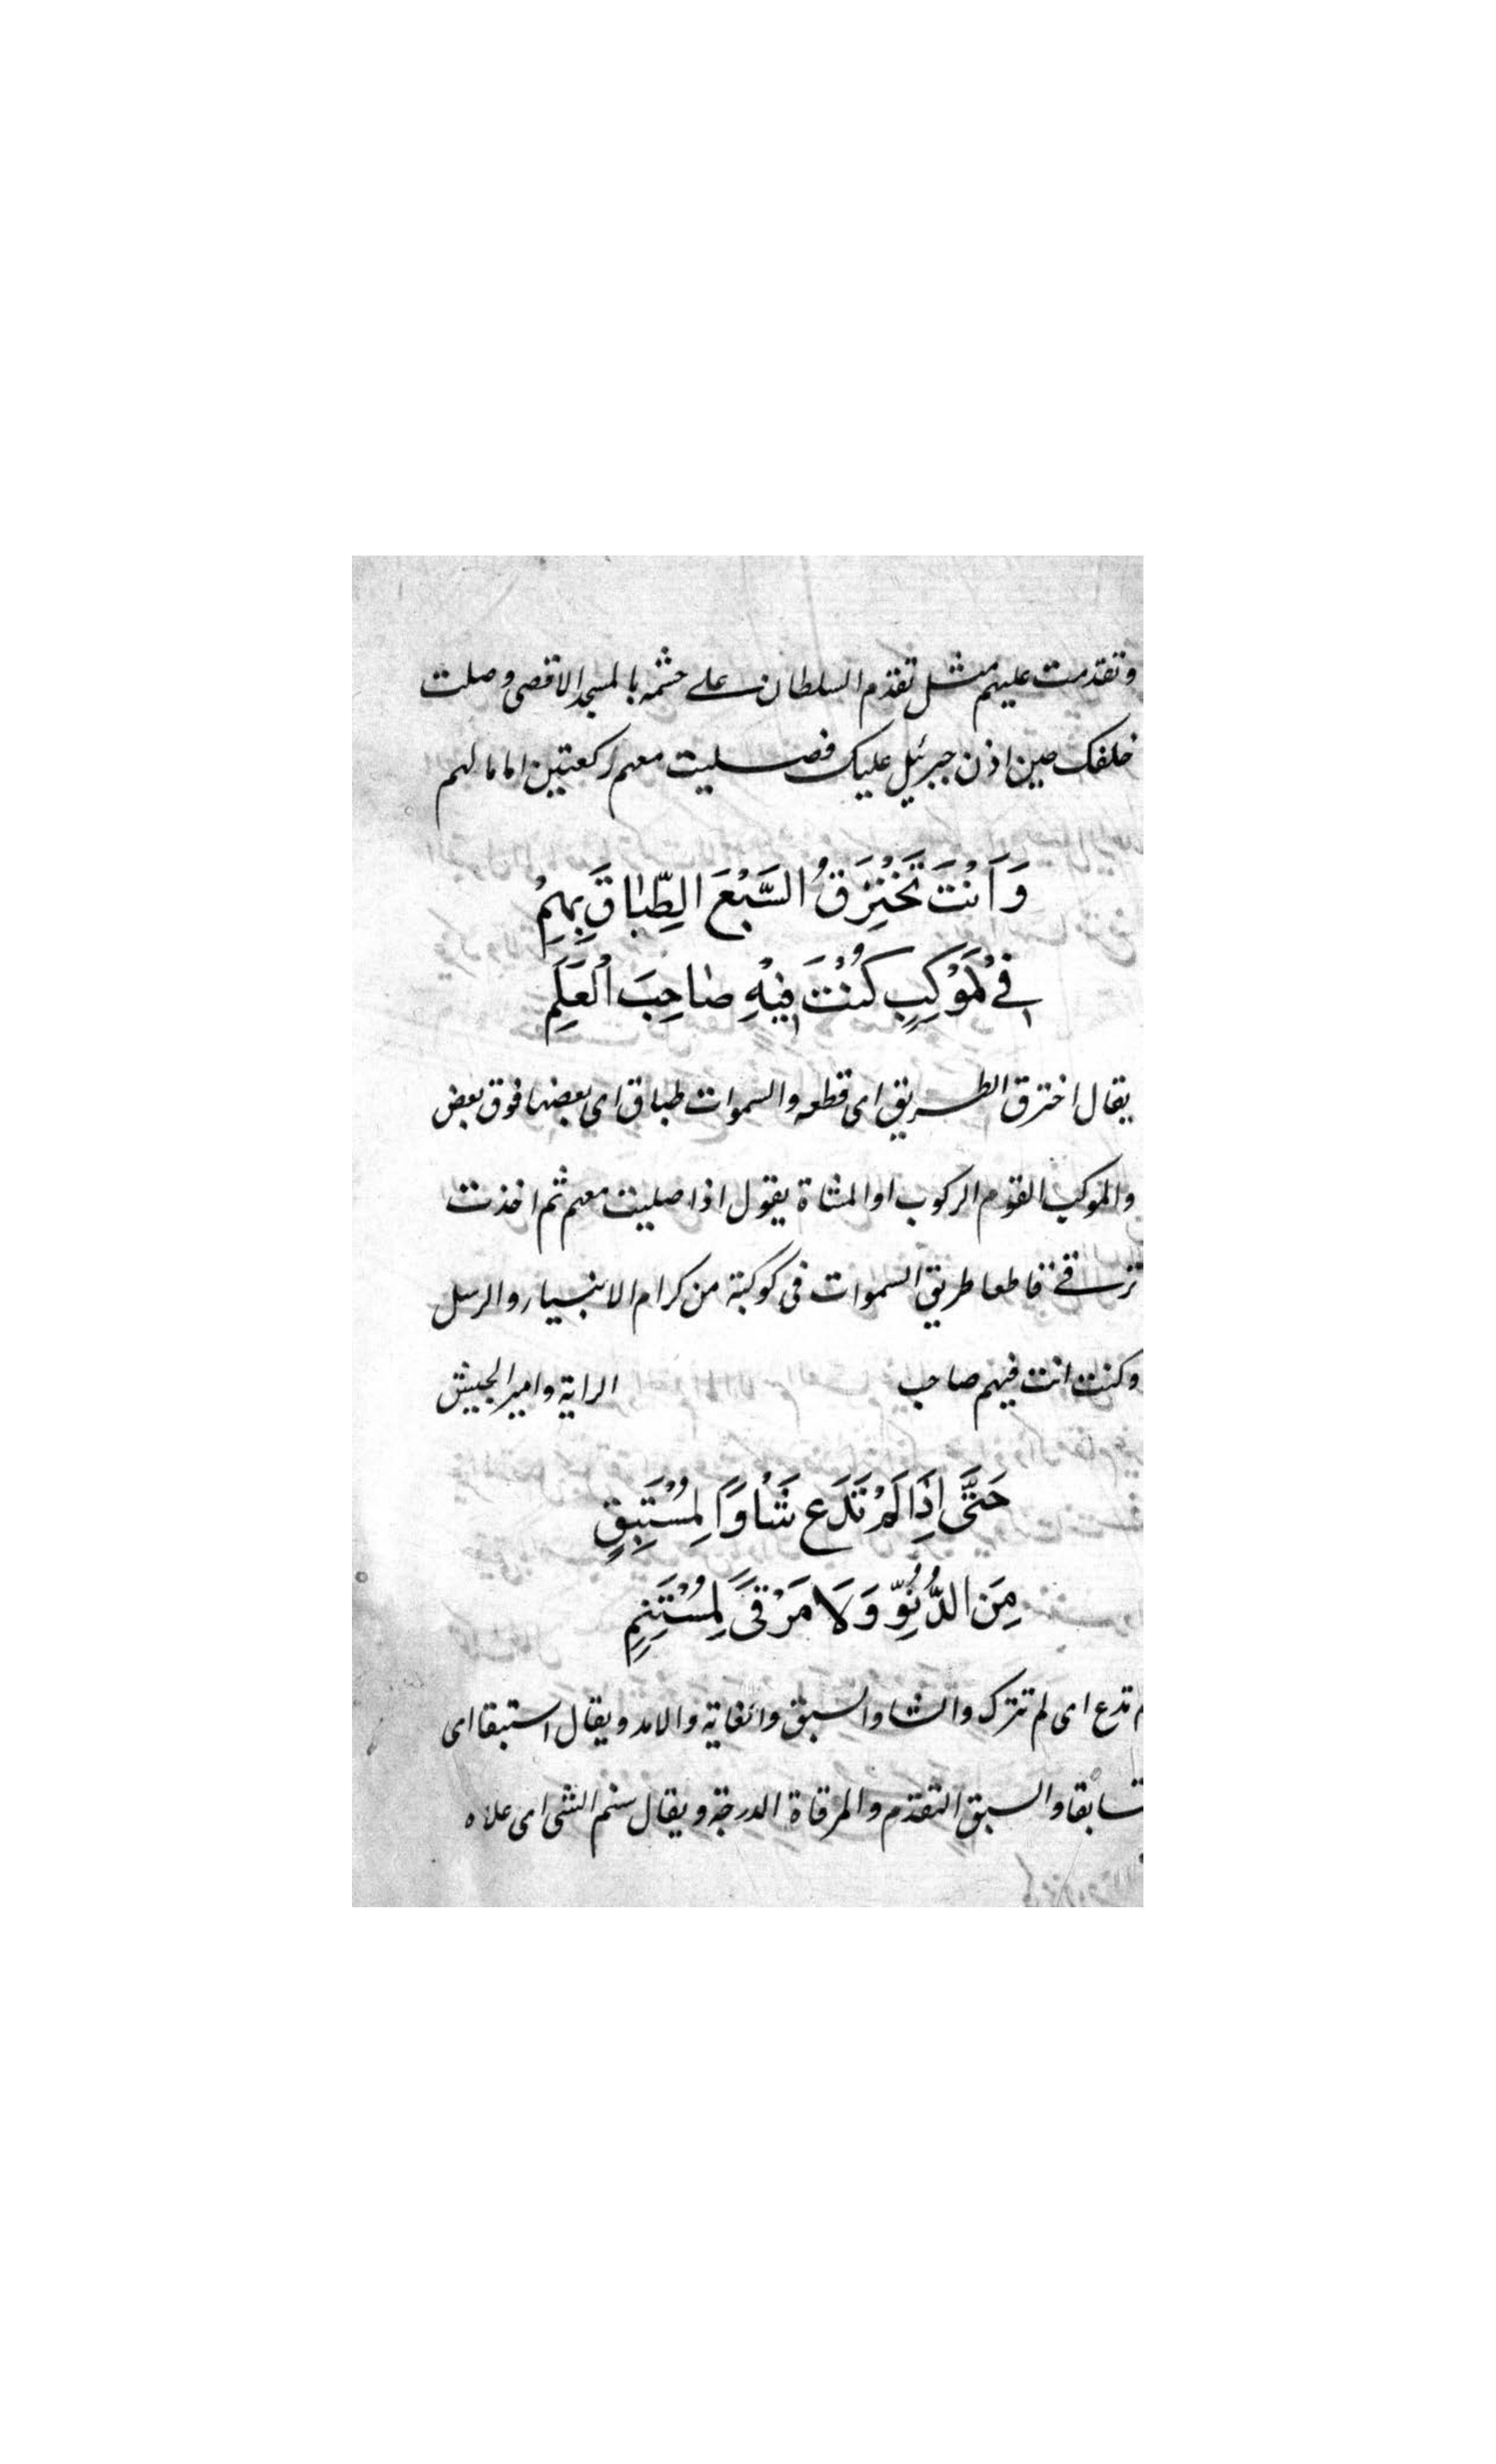 وتقدمت عليهم مثل تقدم السلطان على حشمه بالمسجد الاقصى وصلت
خلفك حين اذن جبرئيل عليك فصليت معهم ركعتين اماما لهم
وَاَنْتَ تَخْتَرِقُ السَّبْعَ الطِّبَاقَ بِهِمْ
فِي مَوْكِبٍ كُنْتَ فِيْهِ صَاحِبَ الْعَلَمِ
يقال اخترق الطريق اى قطعه والسموات طباق اى بعضها فوق بعض
والموكب القوم الركوب او المشاة يقول اذا صليت معهم ثم اخذت
ترقى قاطعا طريق السموات فى كوكبة من كرام الانبياء والرسل
وكنت انت فيهم صاحب الراية وامير الجيش
حَتَّى اِذَا لَمْ تَدَعْ شَأْوًا لِمُسْتَبِقٍ
مِنَ الدُّنُوِّ وَلَا مَرْقًى لِمُسْتَنِمِ
تدع اى لم تترك والشاو السبق والغاية والامد ويقال استبقا اى
تسابقا والسبق التقدم والمرقاة الدرجة ويقال سنم الشى اى علاه